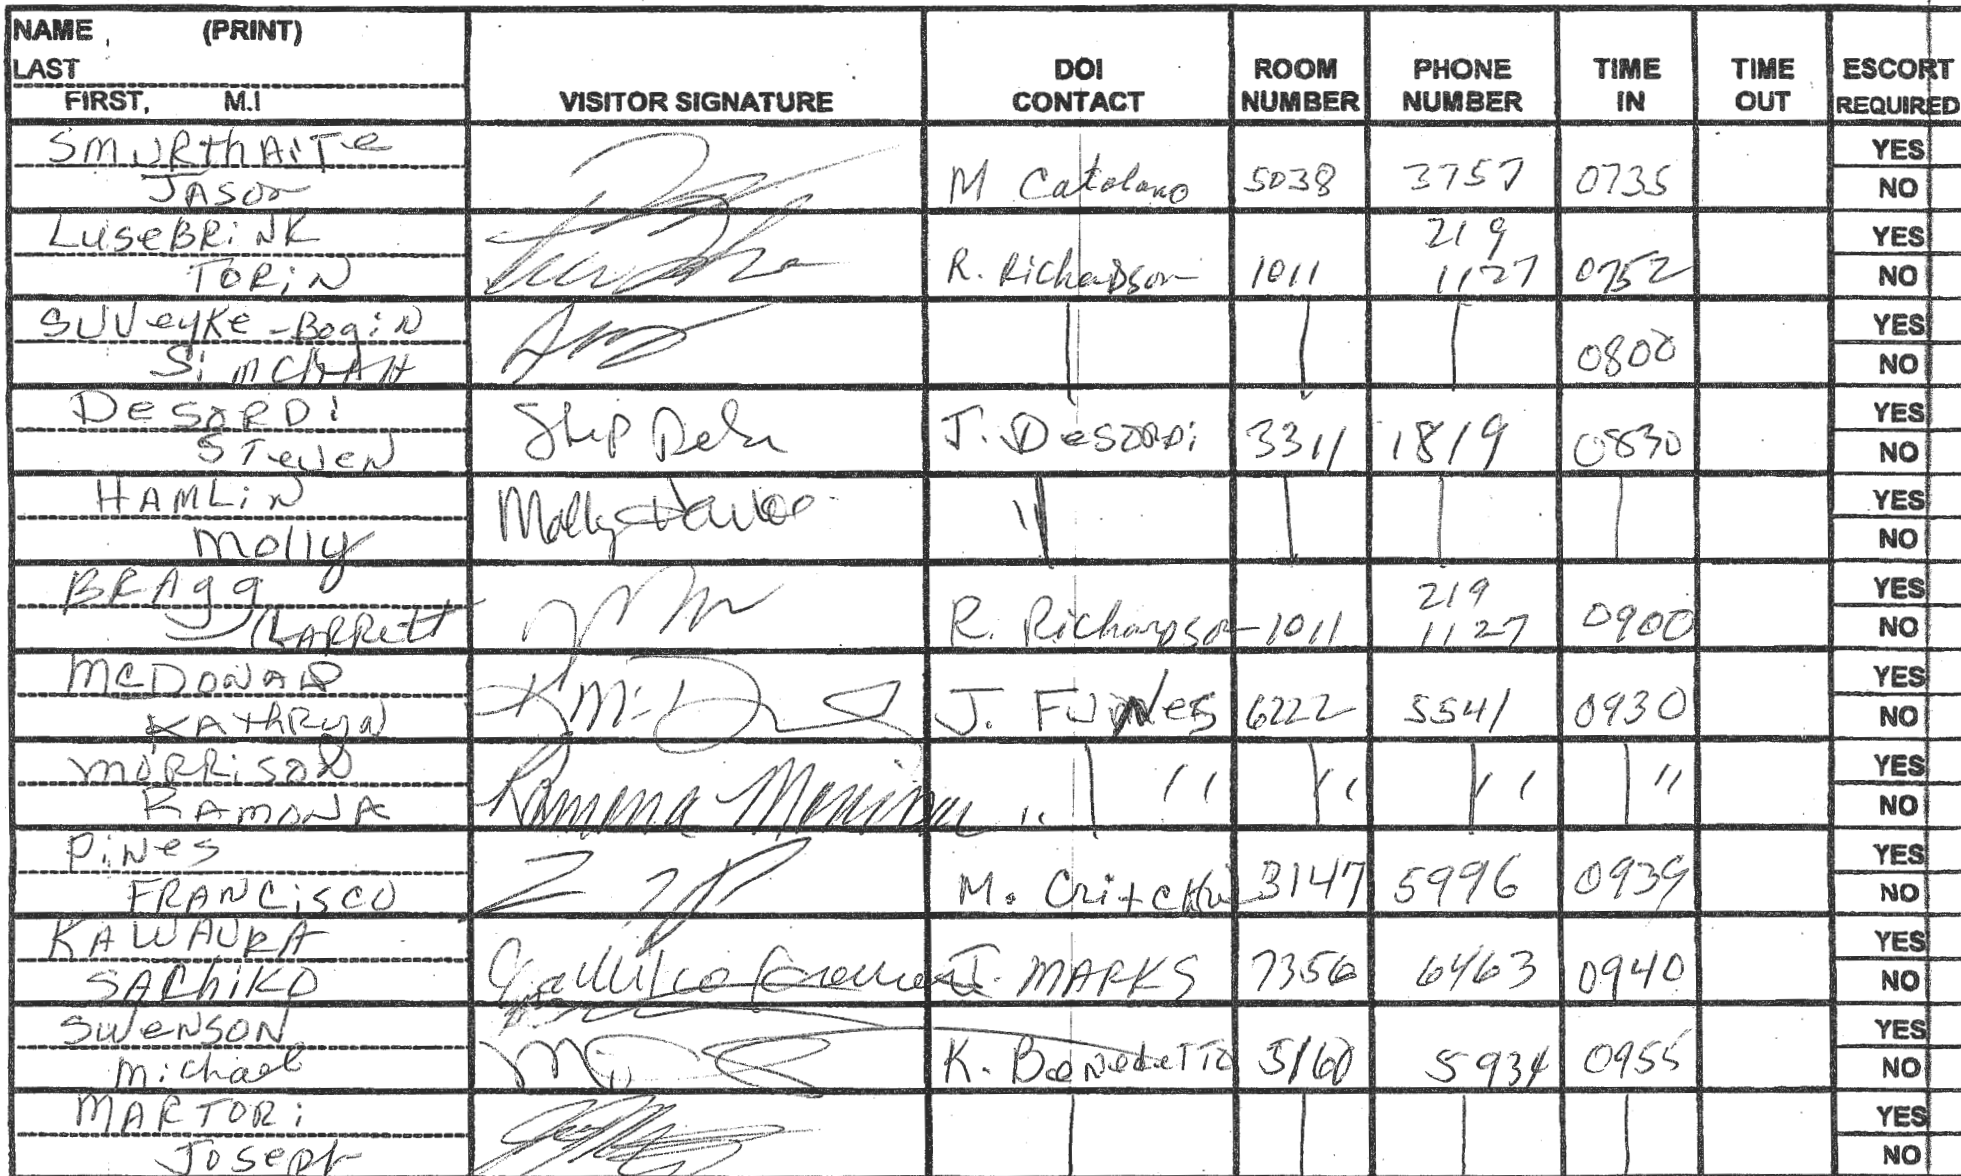 NAME, (PRINT)
LAST
FIRST, M.I
VISITOR SIGNATURE
DOI CONTACT
ROOM NUMBER
PHONE NUMBER
TIME IN
TIME OUT
ESCORT REQUIRED
SMURthAiTe
JASON
M Catalano 5038 3757 0735
YES
NO
LUSEBRiNK
TORiN
R. RichaRDson 1011 219 1127 0752
YES
NO
SUVeyKe-Bogin
SimChAH
0800
YES
NO
DeSORDi
STeveN
J. DeSORDi 3311 1819 0830
YES
NO
HAMLiN
Molly
Molly
"
YES
NO
BRAgg
R. RichaRDson 1011 219 1127 0900
YES
NO
McDONALD
KAThRyN
J. FUNes 6222 5541 0930
YES
NO
MORRiSON
RAMONA
Ramona Morrison " " " " "
YES
NO
PiNeS
FRANCiSCO
M. 3147 5996 0939
YES
NO
KAWAURA
SAChiKO
J. MARKS 7356 6463 0940
YES
NO
SWeNSON
Michael
K. BeNedeTTo 5160 5934 0955
YES
NO
MARTORi
Joseph
YES
NO